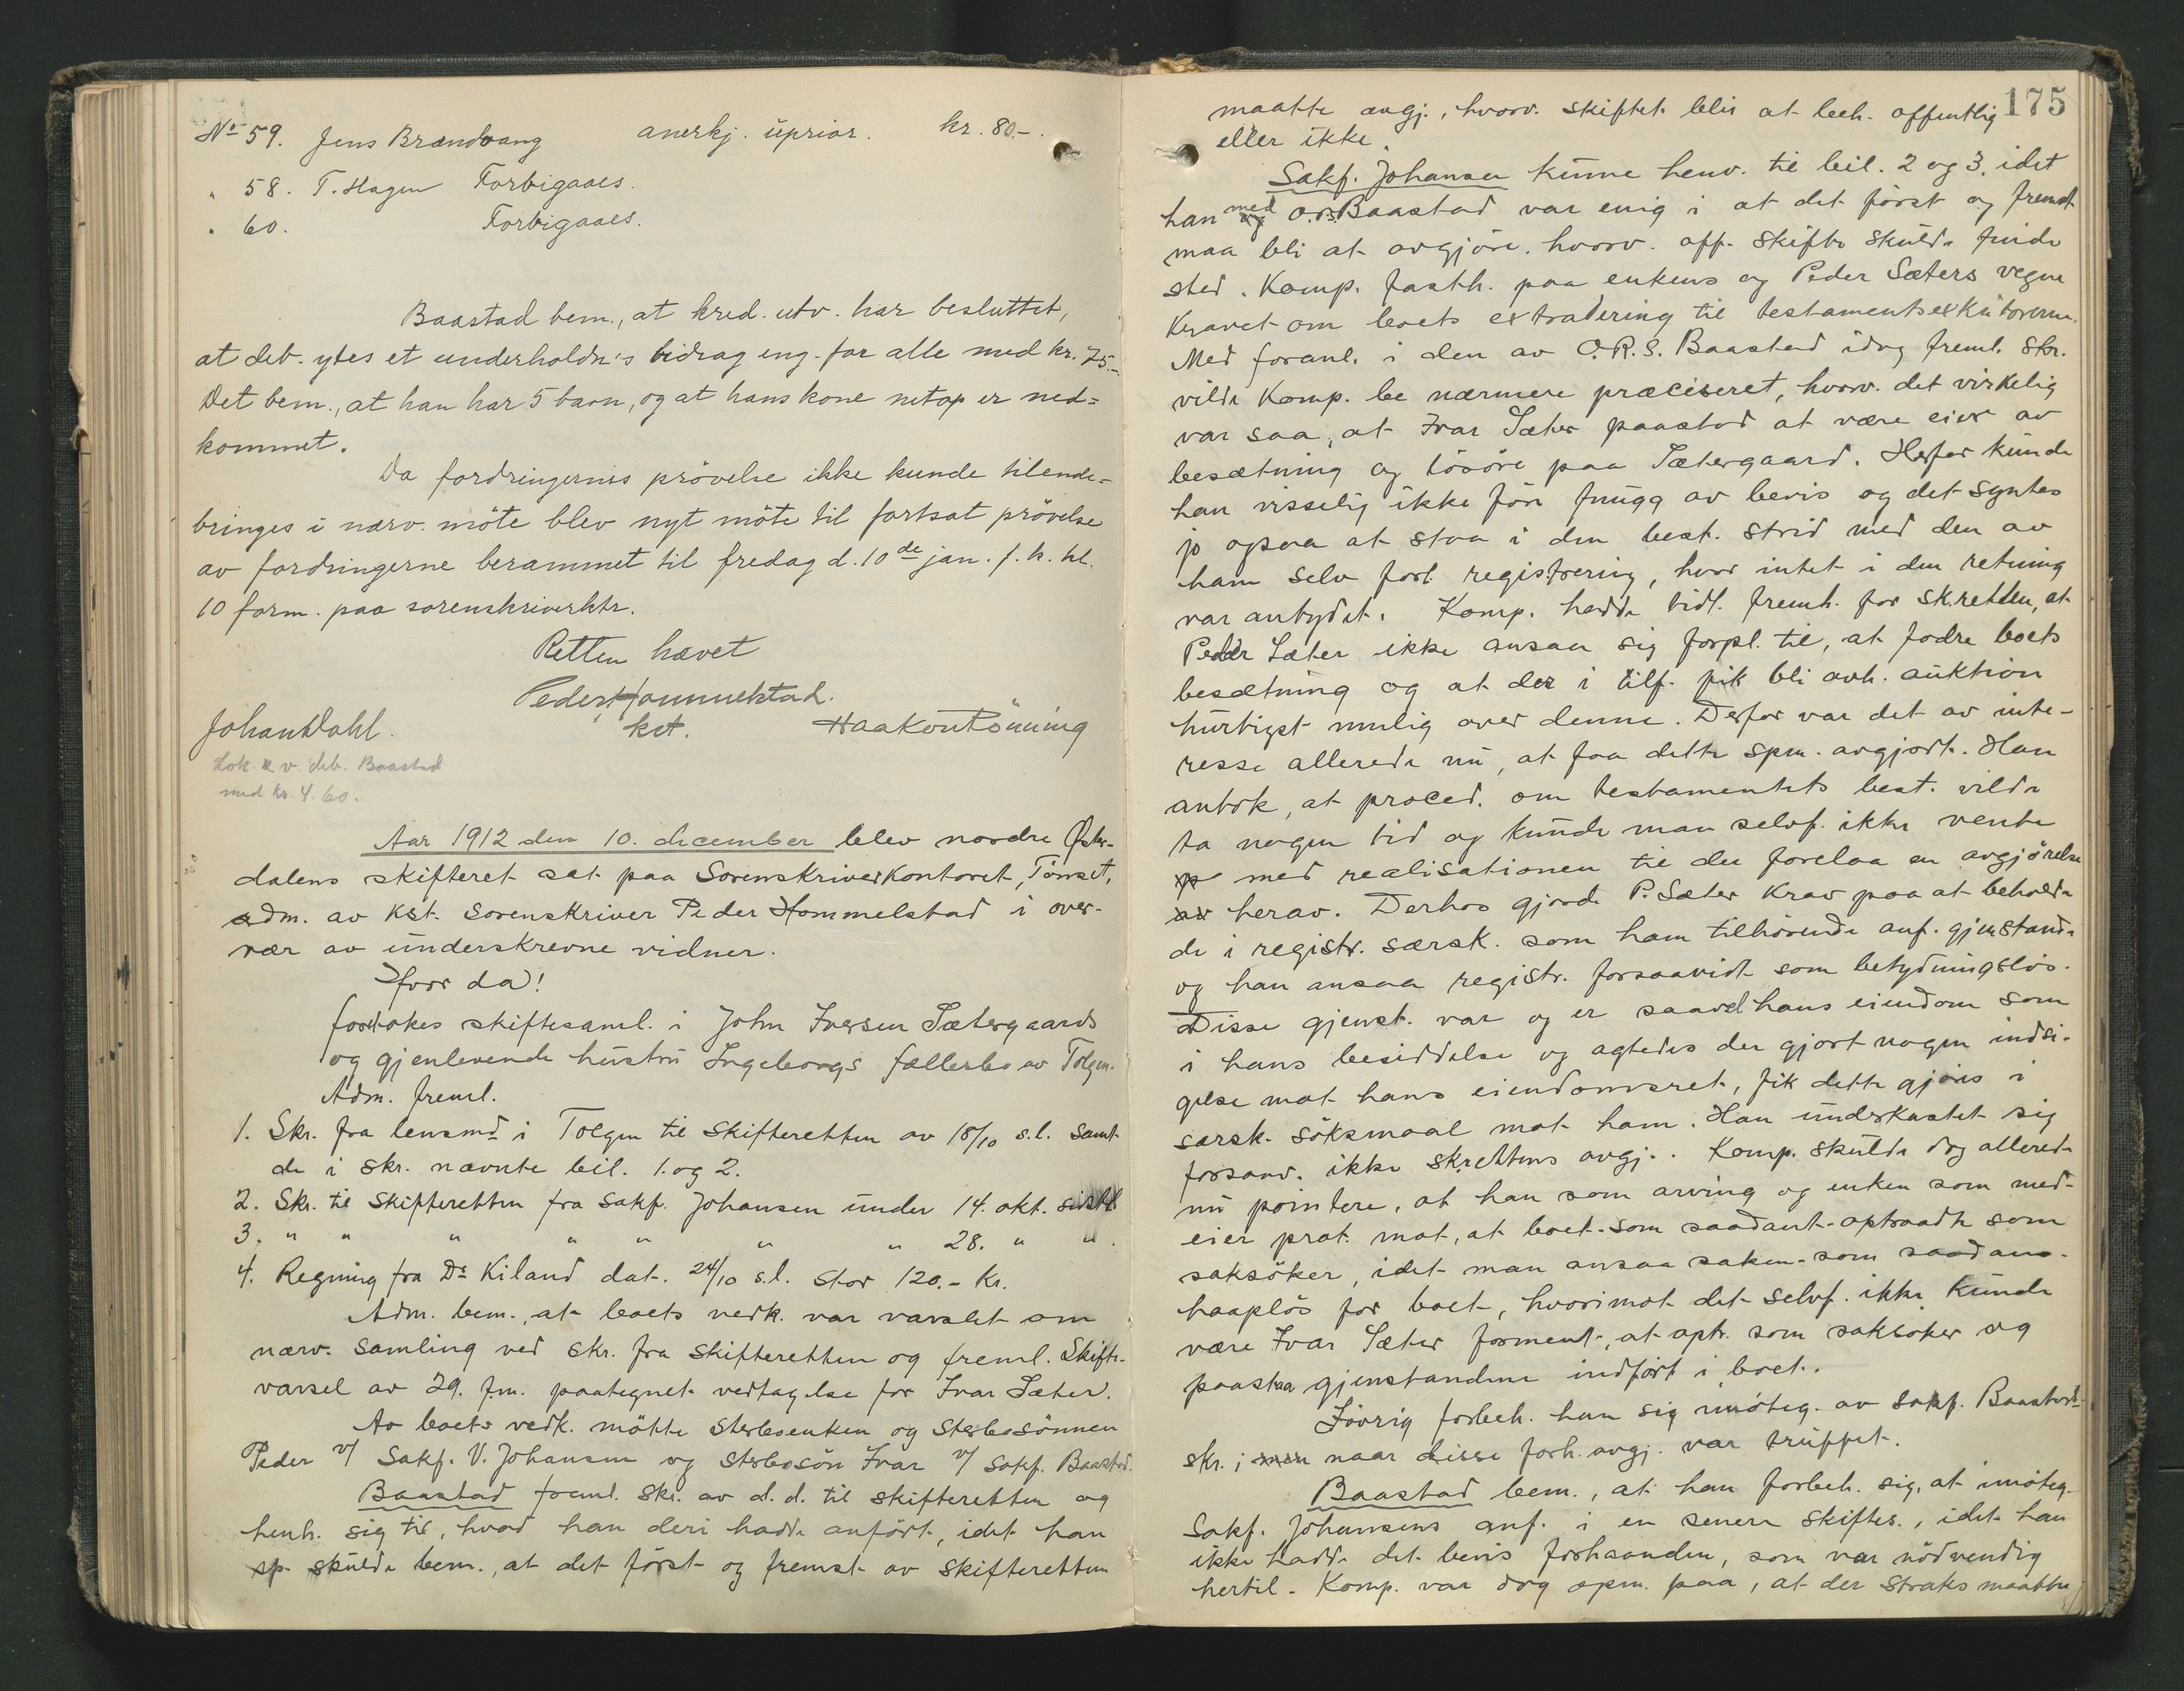 No 59. Jens Brandvang anerkj. uprior. kr. 80.-.
" 58. T. Hagen Forbigaaes.
" 60. Forbigaaes.
Baastad bem., at kred. utv. har besluttet,
at deb. ytes et underholdn's bidrag eng. for alle med kr. 75.-
Det bem., at han har 5 barn, og at hans kone netop er ned-
kommet.
Da fordringernes prövelse ikke kunde tilende-
bringes i nærv. möte blev nyt möte til fortsat prövelse
av fordringerne berammet til fredag d. 10de jan. f. k. kl.
10 form. paa sorenskriverktr.
Retten hævet
Peder Hommelstad.
kst.
Johan Dahl. Haakon Tönning
med kr. 4.60.
Aar 1912 den 10. december blev nordre Øster-
dalens skifteret sat paa Sorenskriverkontoret, Tönset,
adm. av kst. sorenskriver Peder Hommelstad i over-
vær av underskrevne vidner.
Hvor da!
foretokes skiftesaml. i John Iversen Sætergaards
og gjenlevende hustru Ingeborgs fællesbo av Tolgen.
Adm. freml.
1. Skr. fra lensmd i Tolgen til skifteretten av 18/10 s.l. samt
de i skr. nævnte bil. 1. og 2.
2. Skr. til skifteretten fra sakf. Johansen under 14. okt. sidstl.
3. " " " " " " " 28. " ".
4. Regning fra Dr Kiland dat. 24/10 s.l. stor 120.- kr.
Adm. bem., at boets vedk. var varslet om
nærv. samling ved skr. fra skifteretten og freml. skifte-
varsel av 29. f.m. paategnet vedtagelse for Ivar Sæter.
Av boets vedk. mötte sterboenken og sterbosönnen
Peder v/ Sakf. V. Johansen og sterbosön Ivar v/ sakf. Baastad.
Baastad freml. skr. av d.d. til skifteretten og
henh. sig til, hvad han deri hadde anfört, idet han
sp. skulde bem., at det först og fremst av skifteretten
175
maatte avgj., hvorv. skiftet blir at beh. offentlig
eller ikke.
Sakf. Johansen kunne henv. til bil. 2 og 3, idet
han med O.r.s. Baastad var enig i at det först og fremst
maa bli at avgjöre, hvorv. off. skifte skulde finde
sted. Komp. fasth. paa enkens og Peder Sæters vegne
kravet om boets extradering til testamentsexkutorerne.
Med foranl. i den av O.R.S. Baastad idag freml. skr.
vilde Komp. be nærmere præciseret, hvorv. det virkelig
var saa, at Ivar Sæter paastod at være eier av
besætning og lösöre paa Sætergaard. Herfor kunde
han visselig ikke före fnugg av bevis og det syntes
jo ogsaa at staa i den best. strid med den av
ham selv forl. registrering, hvor intet i den retning
var antydet. Komp. hadde tidl. fremh. for sk.retten, at
Peder Sæter ikke ansaa sig forpl. til, at fodre boets
besætning og at der i tilf. fik bli avh. auktion
hurtigst mulig over denne. Derfor var det av inte-
resse allerede nu, at faa dette spm. avgjort. Han
antok, at proced. om testamentets best. vilde
ta nogen tid og kunde man selvf. ikke vente
med realisationen til der forelaa en avgjörelse
herav. Derhos gjorde P. Sæter krav paa at beholde
de i registr. særsk. som ham tilhörende anf. gjenstande
og han ansaa registr. forsaavidt som betydningslös.
Disse gjenst. var og er saavel hans eiendom som
i hans besiddelse og agtedes der gjort nogen indsi-
gelse mot hans eiendomsret, fik dette gjöres i
særsk. söksmaal mot ham. Han underkastet sig
forsaav. ikke sk.rettens avgj. Komp. skulde dog allerede
nu pointere, at han som arving og enken som med-
eier prot. mot, at boet - som saadant - optraadte som
saksöker, idet man ansaa saken - som saadan -
haaplös for boet, hvorimot det selvf. ikke kunde
være Ivar Sæter forment, at optr. som saksöker og
paastaa gjenstandene indfört i boet.
Iövrig forbeh. han sig imöteg. av sakf. Baastads
skr. i naar disse forh. avgj. var truffet.
Baastad bem., at han forbeh. sig, at imöteg.
Sakf. Johansens anf. i en senere skiftes., idet han
ikke hadde det bevis forhaanden, som var nödvendig
hertil. Komp. var dog opm. paa, at der straks maatte